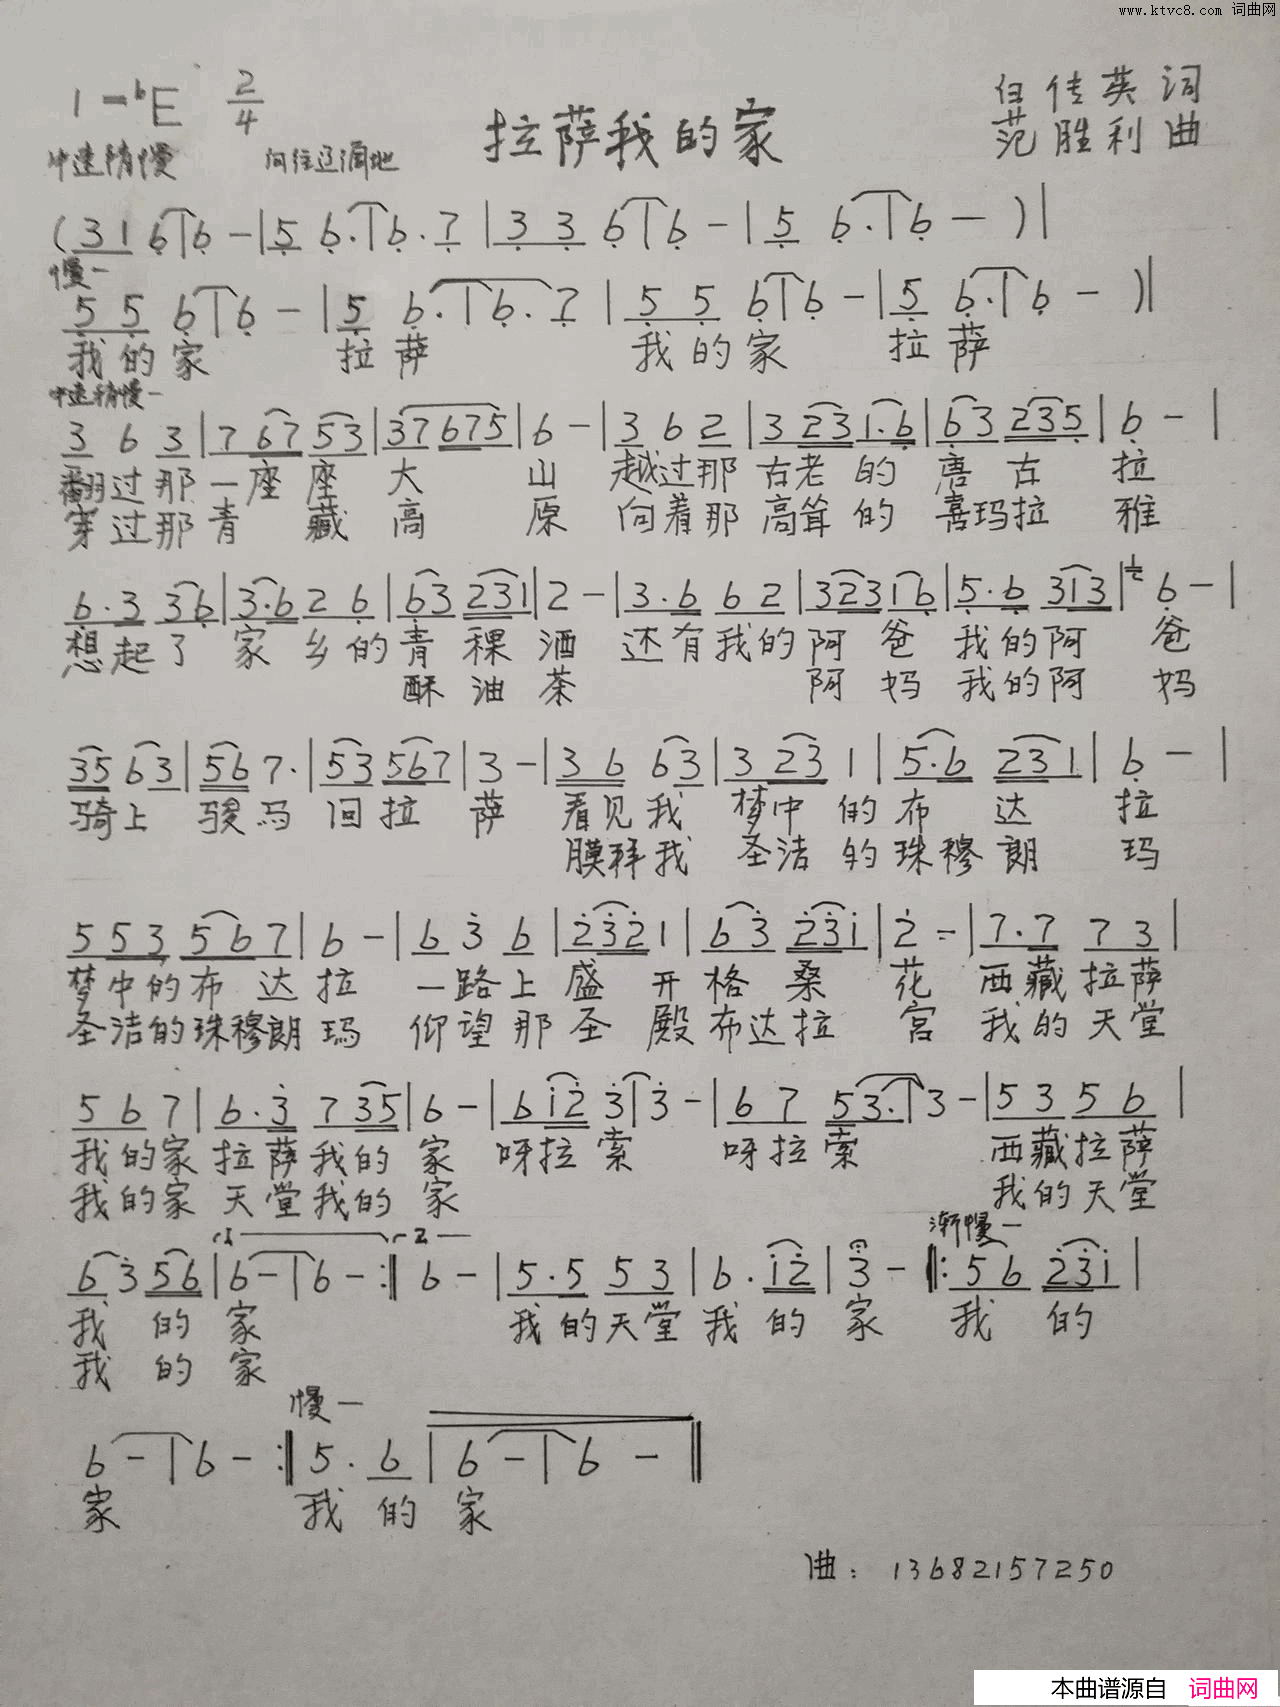 www.ktvc8.com 词曲网
1=bE 2/4
拉萨我的家
任传英 词
范胜利 曲
中速稍慢 向往辽阔地
(3 1 6 | 6 - | 5 6. | 6. 7 | 3 3 6 | 6 - | 5 6. | 6 - )|
慢—
5 5 6 | 6 - | 5 6. | 6. 7 | 5 5 6 | 6 - | 5 6. | 6 - )|
我的家 拉萨 我的家 拉萨
中速稍慢—
3 6 3 | 7 67 53 | 37675 | 6 - | 3 6 2 | 3 23 1.6 | 63 235 | 6 - |
翻过那一座座大山 越过那古老的唐古拉
穿过那青藏高原 向着那高耸的喜玛拉雅
6.3 36 | 3.6 2 6 | 63 231 | 2 - | 3.6 62 | 323 16 | 5.6 313 | 6 - |
想起了家乡的青稞酒 还有我的阿爸我的阿爸
酥油茶 阿妈我的阿妈
35 63 | 56 7. | 53 567 | 3 - | 36 63 | 3 23 1 | 5.6 231 | 6 - |
骑上骏马回拉萨 看见我梦中的布达拉
膜拜我圣洁的珠穆朗玛
553 567 | 6 - | 6 3 6 | 2321 | 63 231 | 2 - | 7.7 73 |
梦中的布达拉 一路上盛开格桑花 西藏拉萨
圣洁的珠穆朗玛 仰望那圣殿布达拉宫 我的天堂
5 6 7 | 6.3 735 | 6 - | 612 3 | 3 - | 67 53. | 3 - | 53 56 |
我的家拉萨我的家 呀拉索 呀拉索 西藏拉萨
我的家天堂我的家 我的天堂
1 2 渐慢—
6 3 56 | 6 - | 6 - :‖ 6 - | 5.5 53 | 6. 12 | 3 - ‖: 56 231 |
我的家 我的天堂我的家 我的
我的家
慢—
6 - | 6 - :‖ 5. 6 | 6 - | 6 - ‖
家 我的家
曲：13682157250
本曲谱源自 词曲网